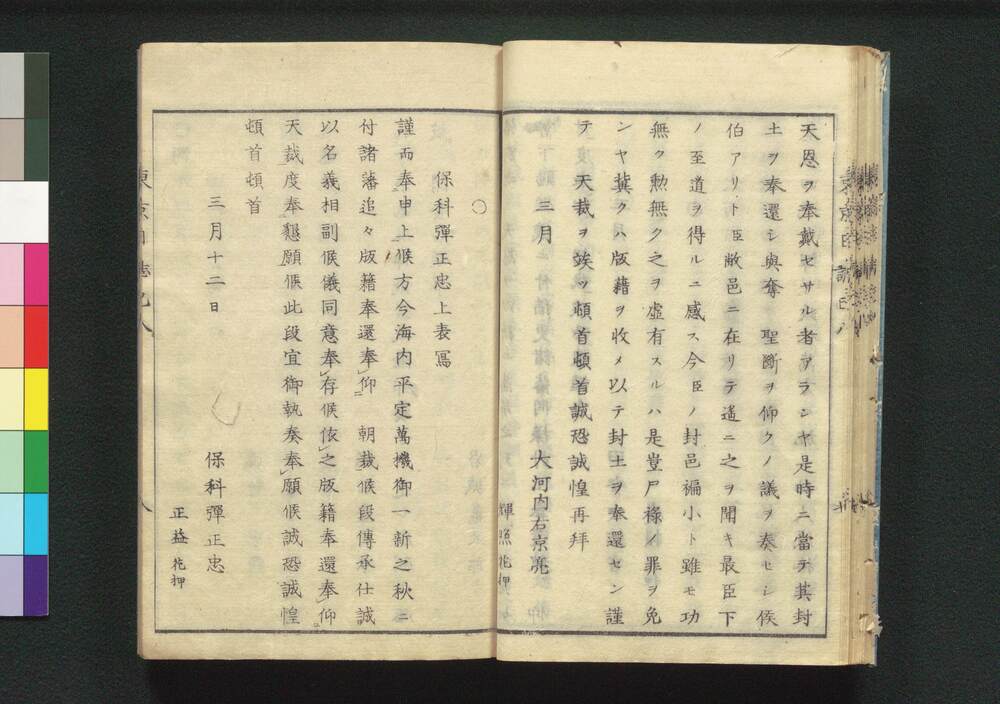 天恩ヲ奉戴セサル者アランヤ是時ニ當テ其封
土ヲ奉還シ與奪　聖斷ヲ仰クノ議ヲ奏セシ侯
伯アリト臣敝邑ニ在リテ遙ニ之ヲ聞キ最臣下
ノ至道ヲ得ルニ感ス今臣ノ封邑褊小ト雖モ功
無ク勲無ク之ヲ虚有スルハ是豈尸祿ノ罪ヲ免
ンヤ冀クハ版藉ヲ收メ以テ封土ヲ奉還セン謹
テ　天裁ヲ竢ツ頓首頓首誠恐誠惶再拜
三月　大河内右京亮
輝照花押
○
保科彈正忠上表寫
謹而奉申上候方今海内平定萬機御一新之秋ニ
付諸藩追々版籍奉還奉仰　朝裁候段傳承仕誠
以名義相副候儀同意奉存候依之版籍奉還奉仰
天裁度奉懇願候此段宜御執奏奉願候誠恐誠惶
頓首頓首
三月十二日　保科彈正忠
正益花押